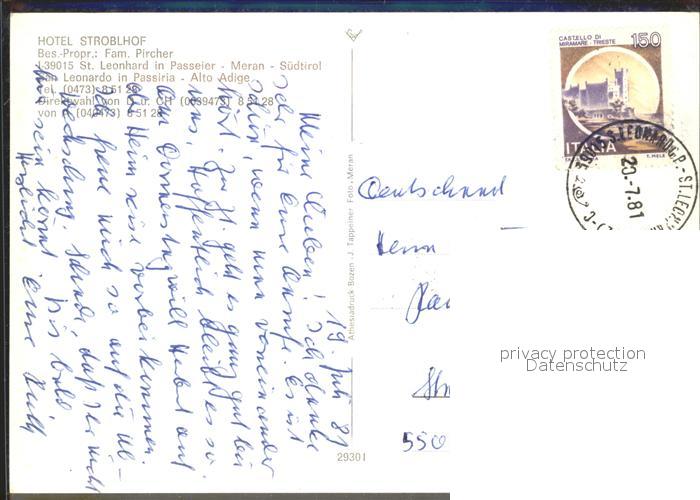 HOTEL STROBLHOF
Bes.-Propr.: Fam. Pircher
I-39015 St. Leonhard in Passeier - Meran - Südtirol
San Leonardo in Passiria - Alto Adige
Tel. (0473) 8 51 28
Direktwahl von D u. CH (0039473) 8 51 28
von A (040473) 8 51 28
CASTELLO DI
MIRAMARE - TRIESTE
150
ITALIA
39015 S. LEONARDO P. - ST. LEONH
20-7.81
19. Juli 81
Meine Lieben! Ich danke
sehr für eure Anrufe. Es ist
schön, wenn man voneinander
hört. Zur Zt. geht es ganz gut bei
uns. Hoffentlich bleibt es so.
Am Donnerstag will Hubert auf
der Heimreise vorbeikommen.
Ich freue mich so auf die Ab-
wechslung. Schade, daß ihr nicht
hier sein könnt. Bis bald
Herzlichst Eure
Athesiadruck Bozen - J. Tappeiner Foto, Meran
29301
Deutschland
Herrn
550
privacy protection
Datenschutz